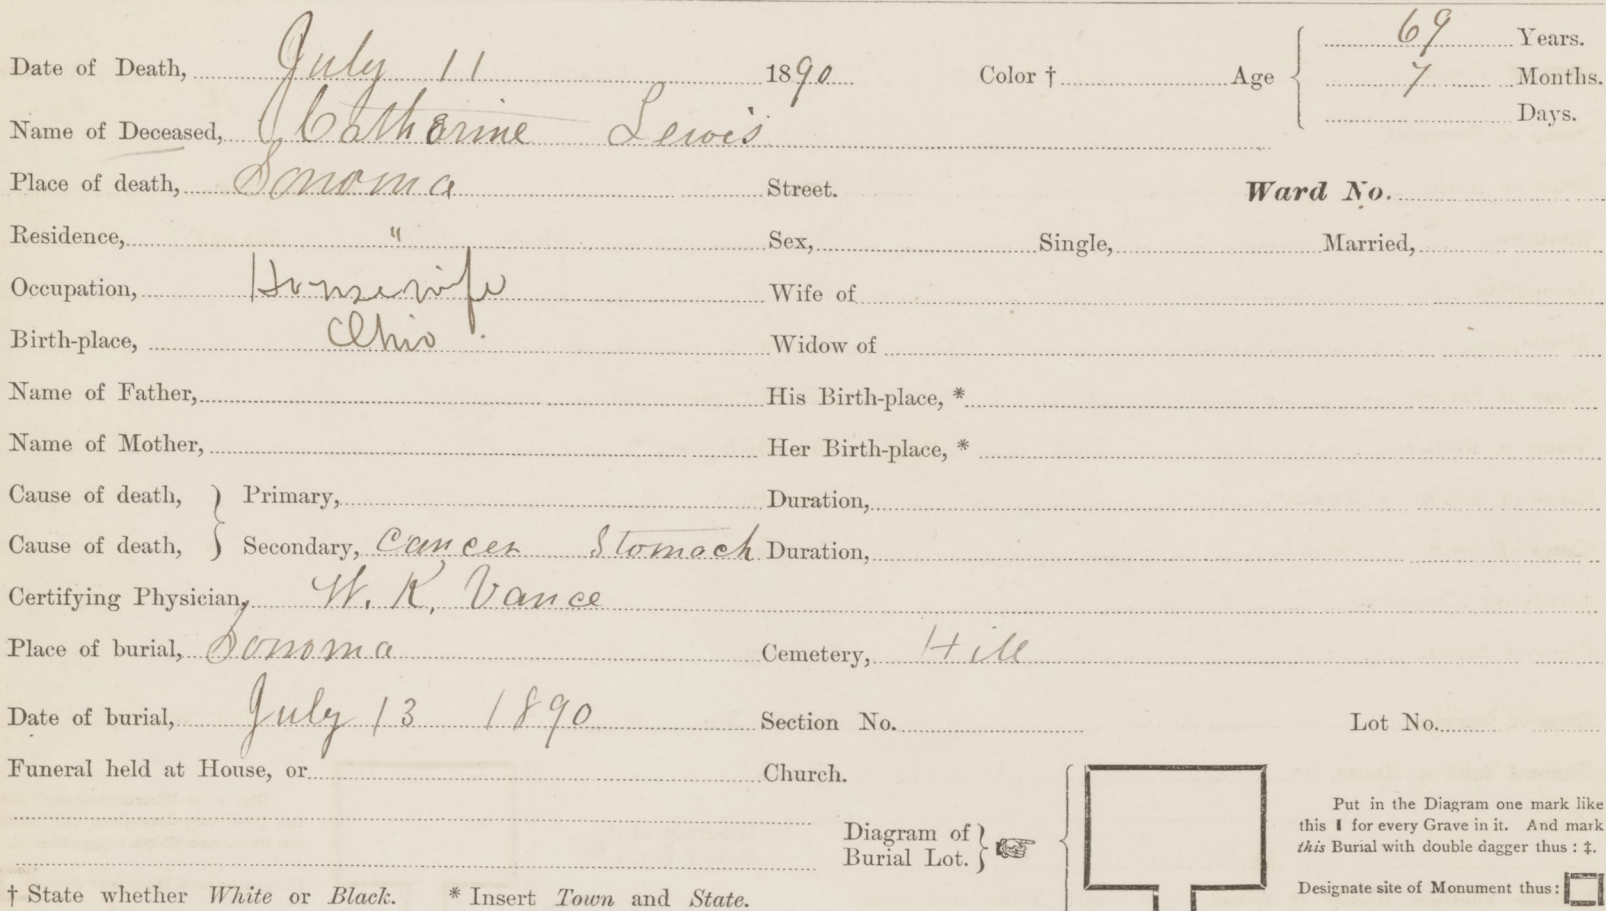 69 Years.
Date of Death, July 11 1890 Color † Age 7 Months.
Name of Deceased, Catharine Lewis Days.
Place of death, Sonoma Street. Ward No.
Residence, " Sex, Single, Married,
Occupation, Housewife Wife of
Birth-place, Ohio Widow of
Name of Father, His Birth-place, *
Name of Mother, Her Birth-place, *
Cause of death, } Primary, Duration,
Cause of death, } Secondary, Cancer Stomach Duration,
Certifying Physician, W. K, Vance
Place of burial, Sonoma Cemetery, Hill
Date of burial, July 13 1890 Section No. Lot No.
Funeral held at House, or Church.
Put in the Diagram one mark like
this I for every Grave in it. And mark
Diagram of
Burial Lot. }
this Burial with double dagger thus : ‡.
Designate site of Monument thus :
† State whether White or Black. * Insert Town and State.